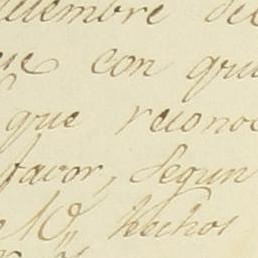 tiembre de
ue con gra
que recono
favor, segun
e N, hechos